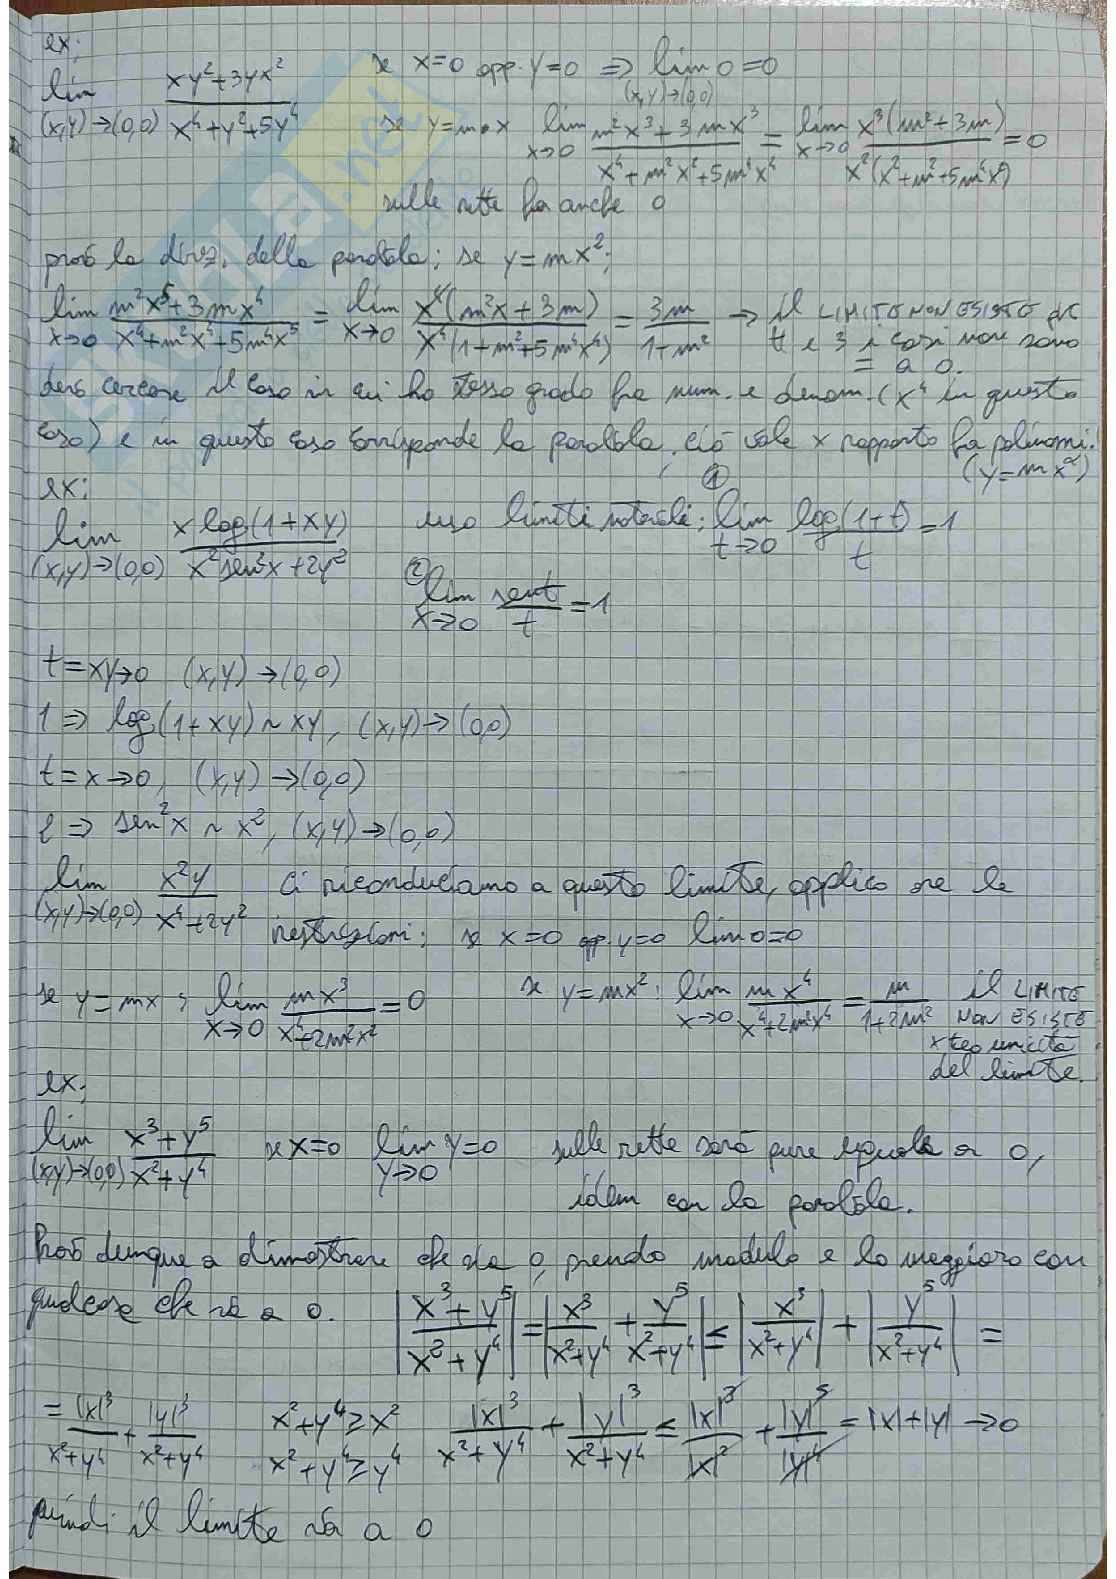 ex:
lim (x,y)→(0,0) (xy²+3yx²)/(x⁴+y²+5y⁴) se x=0 opp. y=0 ⇒ lim (x,y)→(0,0) 0=0
se y=m·x lim x→0 (m²x³+3mx³)/(x⁴+m²x²+5m⁴x⁴) = lim x→0 x³(m²+3m)/x²(x²+m²+5m⁴x²) = 0
sulle rette fa anche 0
provo la direz. della parabola; se y=mx²:
lim x→0 (m²x⁵+3mx⁴)/(x⁴+m²x⁴+5m⁴x⁵) = lim x→0 x⁴(m²x+3m)/x⁴(1+m²+5m⁴x⁴) = 3m/(1+m²) → il LIMITE NON ESISTE
e 3 i casi non sono = a 0.
devo cercare il caso in cui ho stesso grado fra num. e denom. (x⁴ in questo
caso) e in questo caso corrisponde la parabola, ciò vale x rapporto fra polinomi.
(y=mx²)
ex:
lim (x,y)→(0,0) x log(1+xy)/(x²sen²x+2y²) uso limiti notevoli: ① lim t→0 log(1+t)/t = 1
② lim x→0 sent/t = 1
t=xy→0 (x,y)→(0,0)
1 ⇒ log(1+xy) ~ xy, (x,y)→(0,0)
t=x→0, (x,y)→(0,0)
2 ⇒ sen²x ~ x², (x,y)→(0,0)
lim (x,y)→(0,0) x²y/(x⁴+2y²) Ci riconduciamo a questo limite, applico ora le
restrizioni: se x=0 opp. y=0 lim 0=0
se y=mx; lim x→0 mx³/(x⁴+2m²x²) = 0 se y=mx²: lim x→0 mx⁴/(x⁴+2m²x⁴) = m/(1+2m²) il LIMITE
NON ESISTE
x teo unicità
del limite.
ex:
lim (x,y)→(0,0) (x³+y⁵)/(x²+y⁴) se x=0 lim y→0 y=0 sulle rette sarà pure uguale a 0,
idem con la parabola.
Provo dunque a dimostrare che sia 0, prendo modulo e lo maggioro con
qualcosa che va a 0. |(x³+y⁵)/(x²+y⁴)| = |x³/(x²+y⁴) + y⁵/(x²+y⁴)| ≤ |x³/(x²+y⁴)| + |y⁵/(x²+y⁴)| =
= |x|³/(x²+y⁴) + |y|³/(x²+y⁴) x²+y⁴≥x² |x|³/(x²+y⁴) + |y|³/(x²+y⁴) ≤ |x|³/|x|² + |y|⁵/|y|⁴ = |x|+|y| → 0
x²+y⁴≥y⁴
quindi il limite va a 0